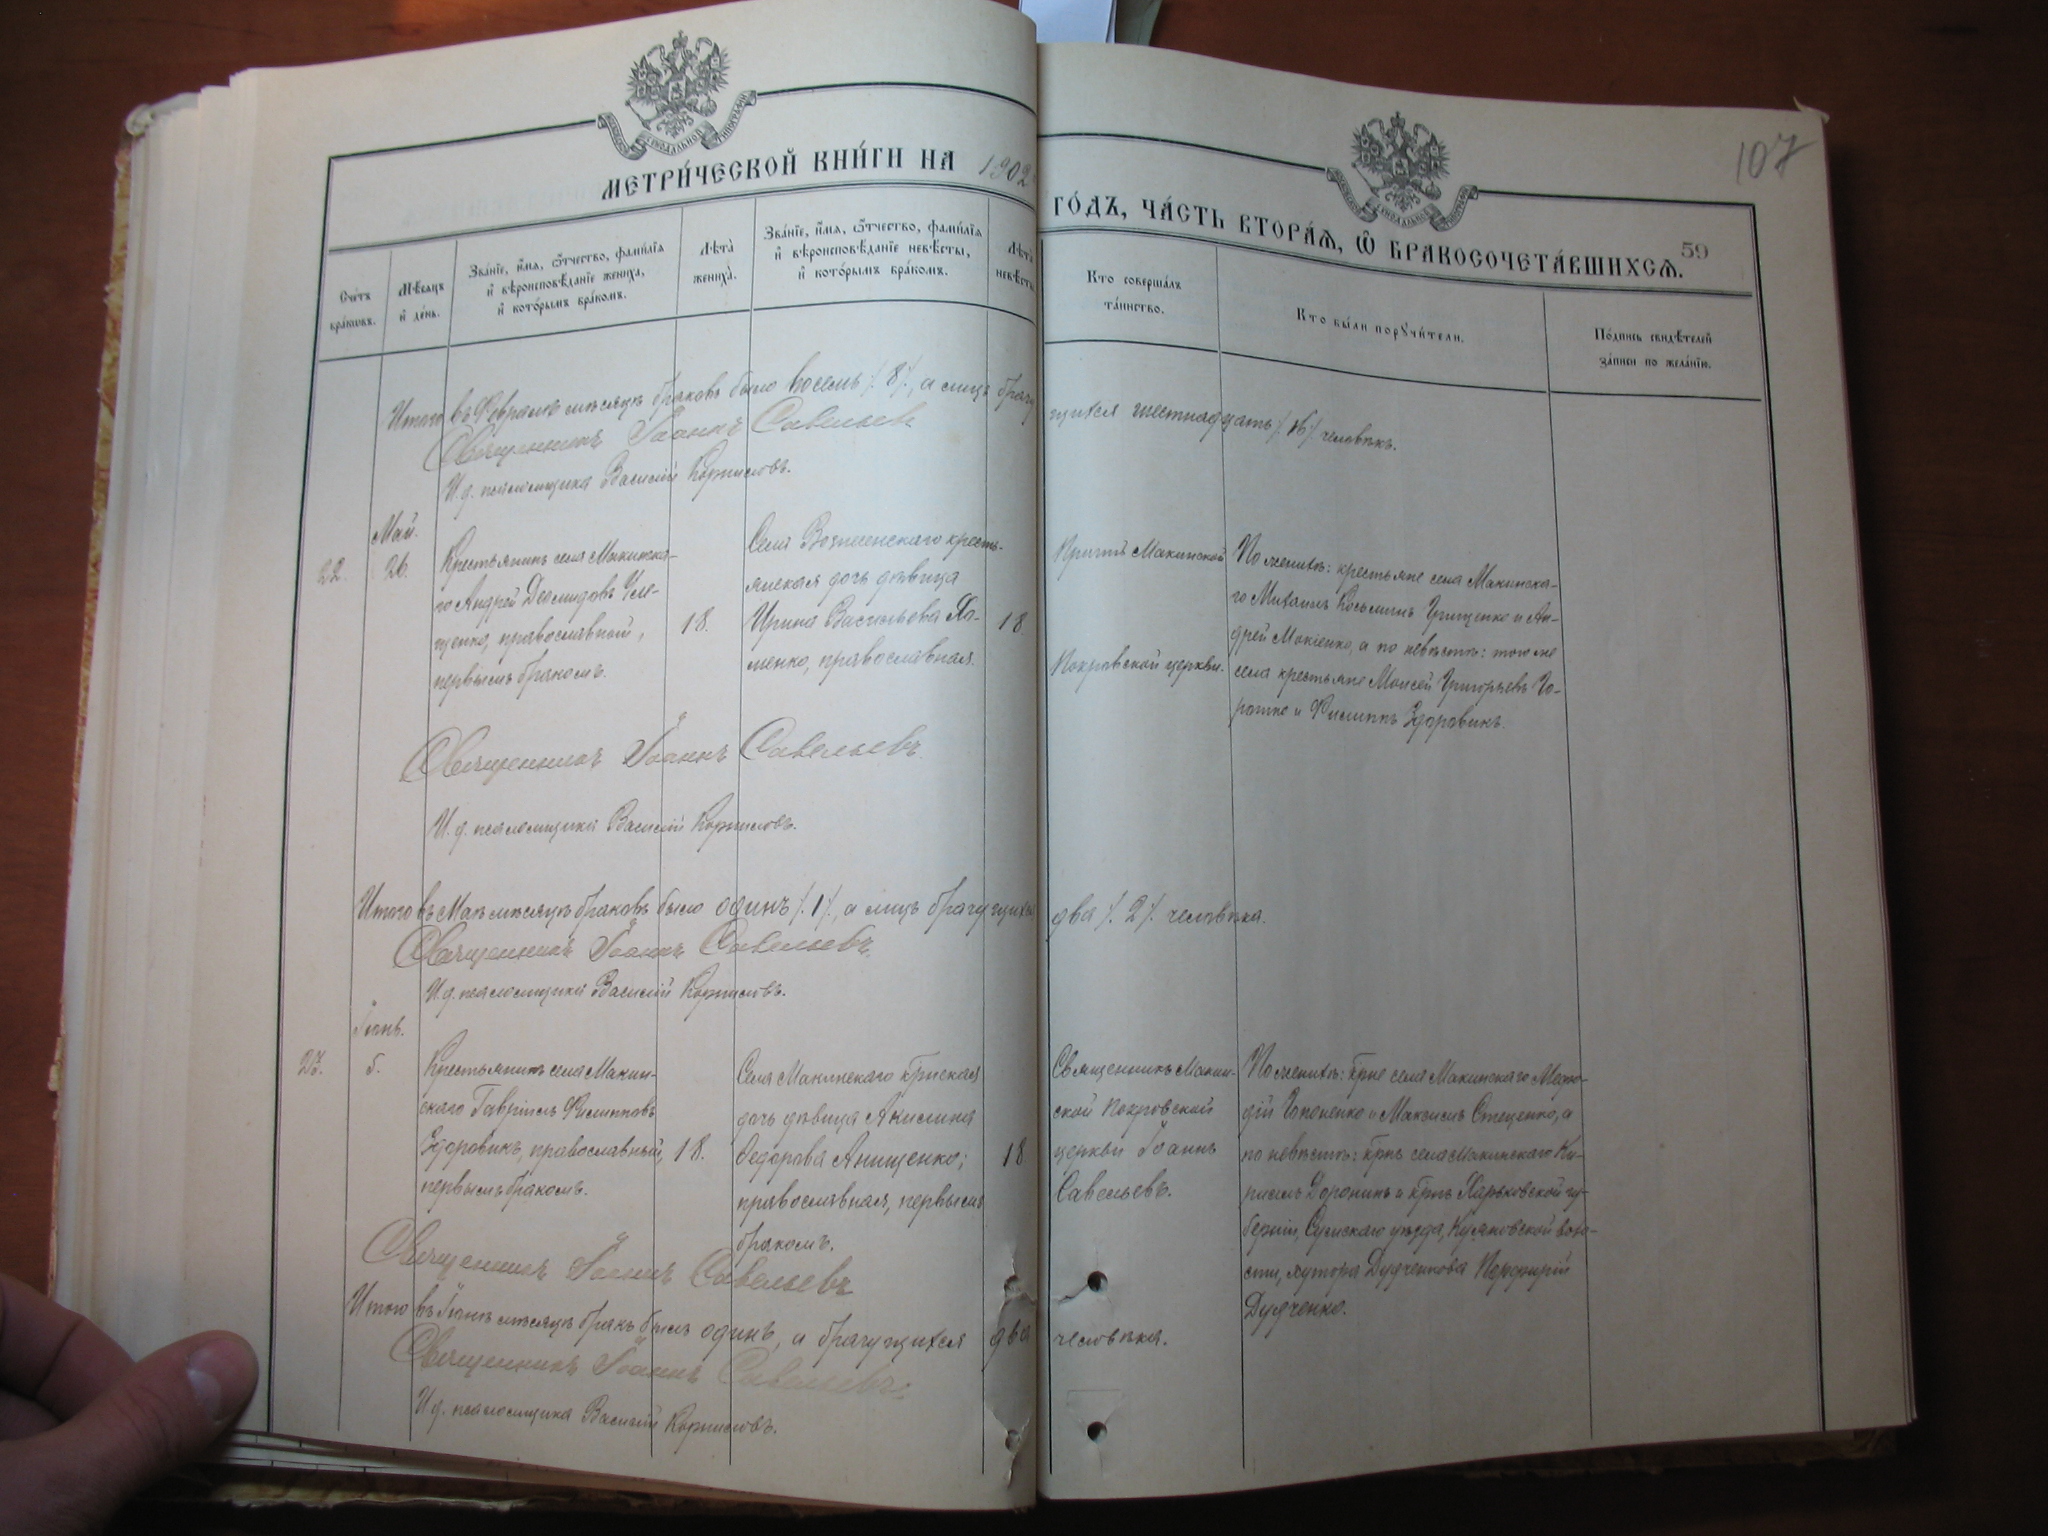 МЕТРИ́ЧЕСКОЙ КНИ́ГИ НА 1902
ГО́ДЪ, ЧА́СТЬ ВТОРА́Я, Ѡ БРАКОСОЧЕТА́ВШИХСЯ.
107
59
Сче́тъ
бра́ковъ.
Мѣ́сяцъ
и де́нь.
Зва́нїе, и́мя, ѻ́тчество, фами́лїя
и вѣроисповѣ́данїе жениха̀,
и кото́рымъ бра́комъ.
Лѣта̀
жениха̀.
Зва́нїе, и́мя, ѻ́тчество, фами́лїя
и вѣроисповѣ́данїе невѣ́сты,
и кото́рымъ бра́комъ.
Лѣта̀
невѣ́сты.
Кто соверша́лъ
та́инство.
Кто бы́ли поручи́тели.
По́дпись свидѣ́телей
за́писи по жела́нїю.
Итого въ Февралѣ мѣсяцѣ браковъ было восемь /. 8 /., а лицъ брачу
щихся шестнадцать /. 16 /. человѣкъ.
Священникъ Іоаннъ Савельевъ
И. д. псаломщика Василій
Май.
22.
26.
Крестьянинъ села Макинска-
го Андрей Демидовъ
православный,
первымъ бракомъ.
18.
Села Вознесенскаго кресть-
янская дочь дѣвица
Ирина Васильева Хо-
менко, православная.
18
Причтъ Макинской
Покровской церкви.
По женихѣ: крестьяне села Макинска-
го Михаилъ Косьминъ Грищенко и Ан-
дрей Мокіенко, а по невѣстѣ: того же
села крестьяне Моисей Григорьевъ Го-
и Филиппъ Здоровикъ.
Священникъ Іоаннъ Савельевъ.
И. д. псаломщика Василій
Итого въ Маѣ мѣсяцѣ браковъ было одинъ /. 1 /., а лицъ брачущихся
два /. 2 /. человѣка.
Священникъ Іоаннъ Савельевъ.
И. д. псаломщика Василій
Іюнь.
23.
5.
Крестьянинъ села Макин-
скаго Гавріилъ Филипповъ
Здоровикъ, православный,
первымъ бракомъ.
18.
Села Макинскаго крнская
дочь дѣвица Акилина
Ѳедорова Анищенко;
православная, первымъ
бракомъ.
18
Священникъ Макин-
ской Покровской
церкви Іоаннъ
Савельевъ.
По женихѣ: крне села Макинскаго
Гопоненко и Максимъ Стеценко, а
по невѣстѣ: крнъ села Макинскаго Ки-
риллъ Доронинъ и крнъ Харьковской гу-
берніи, Сумскаго уѣзда, воло-
сти, хутора Дудченкова Порфирій
Дудченко.
Священникъ Іоаннъ Савельевъ
Итого въ Іюнѣ мѣсяцѣ бракъ былъ одинъ, а брачущихся два
человѣка.
Священникъ Іоаннъ Савельевъ.
И. д. псаломщика Василій